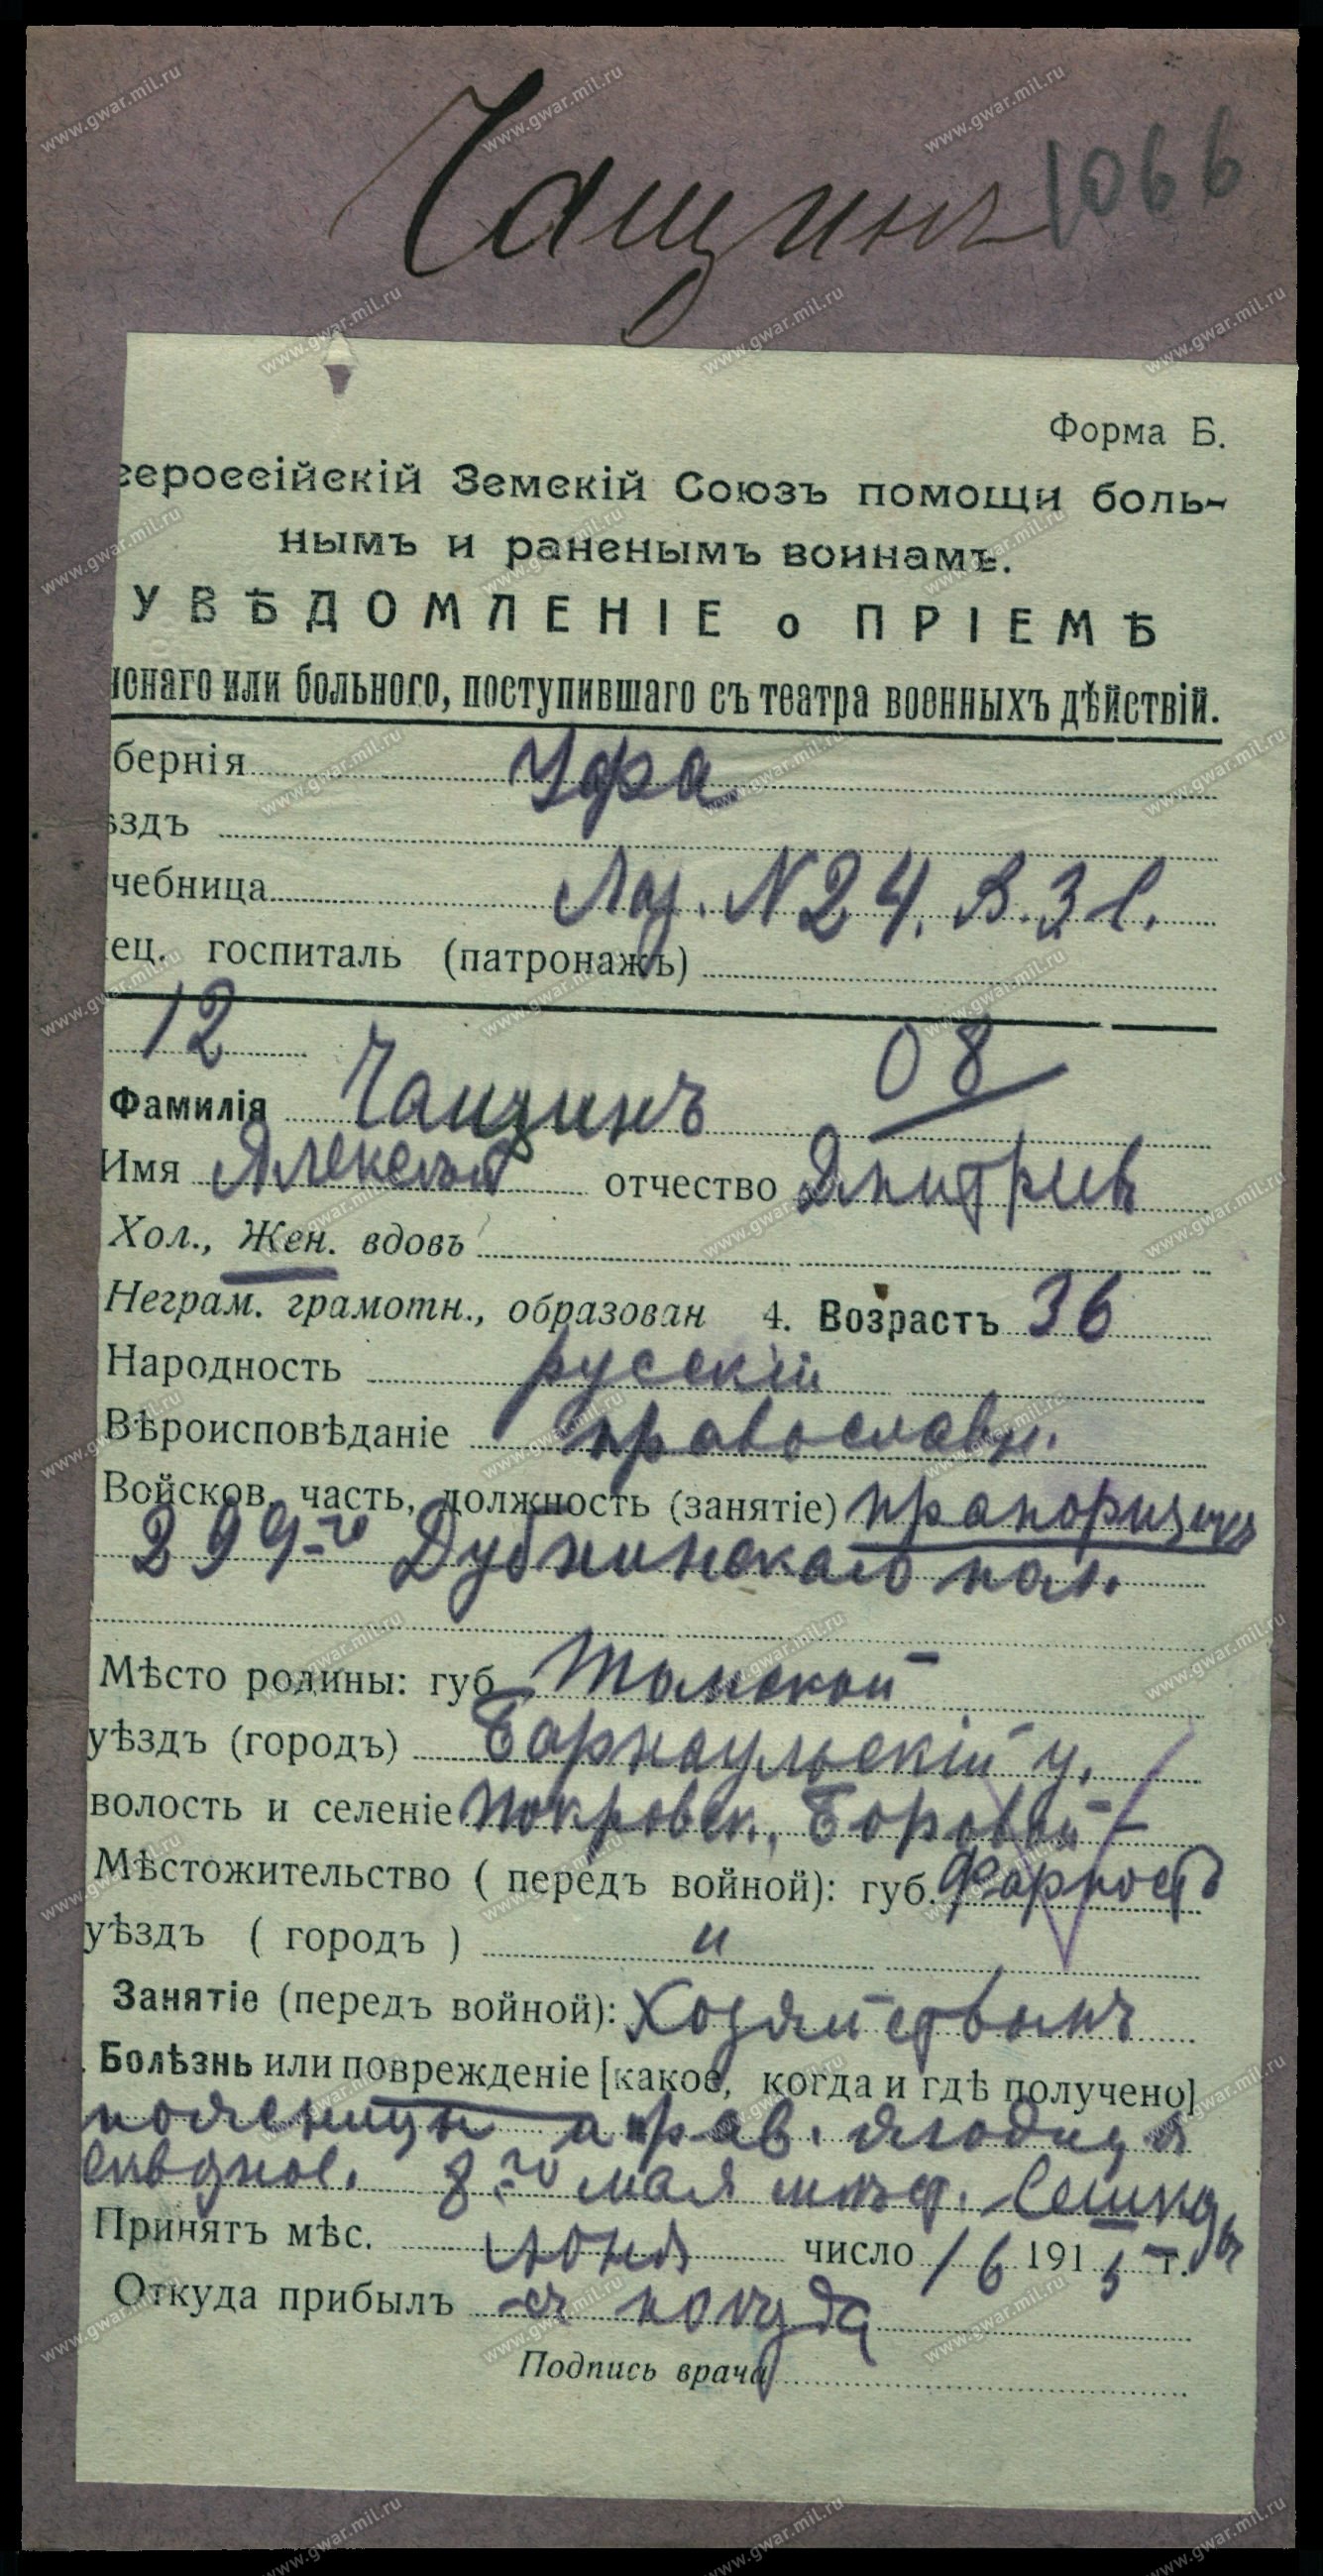 Чащинъ 1066
Форма Б.
сероссійскій Земскій Союзъ помощи боль-
нымъ и раненымъ воинамъ.
УВѢДОМЛЕНІЕ о ПРІЕМѢ
ненаго или больного, поступившаго съ театра военныхъ дѣйствій.
бернія Уфа
ѣздъ
чебница Лаз. N 24. В.З.С.
ец. госпиталь (патронажъ)
12 08
Фамилія Чащинъ
Имя Алексѣй отчество Дмитріев
Хол., Жен. вдовъ
Неграм. грамотн., образован 4. Возрастъ 36
Народность русскій
Вѣроисповѣданіе православн.
Войсков. часть, должность (занятіе) прапорщикъ
299-го Дубнинскаго пол.
Мѣсто родины: губ. Томской
уѣздъ (городъ) Барнаульскій у.
волость и селеніе Покровск., Боровой
Мѣстожительство ( передъ войной): губ. Форпостъ
уѣздъ ( городъ ) "
Занятіе (передъ войной): Хозяйствомъ
Болѣзнь или поврежденіе [какое, когда и гдѣ получено]
поясницы и прав. ягодица
сквозное. 8-го мая
Принятъ мѣс. июня число 16 1915 г.
Откуда прибылъ съ поѣзда
Подпись врача
www.gwar.mil.ru